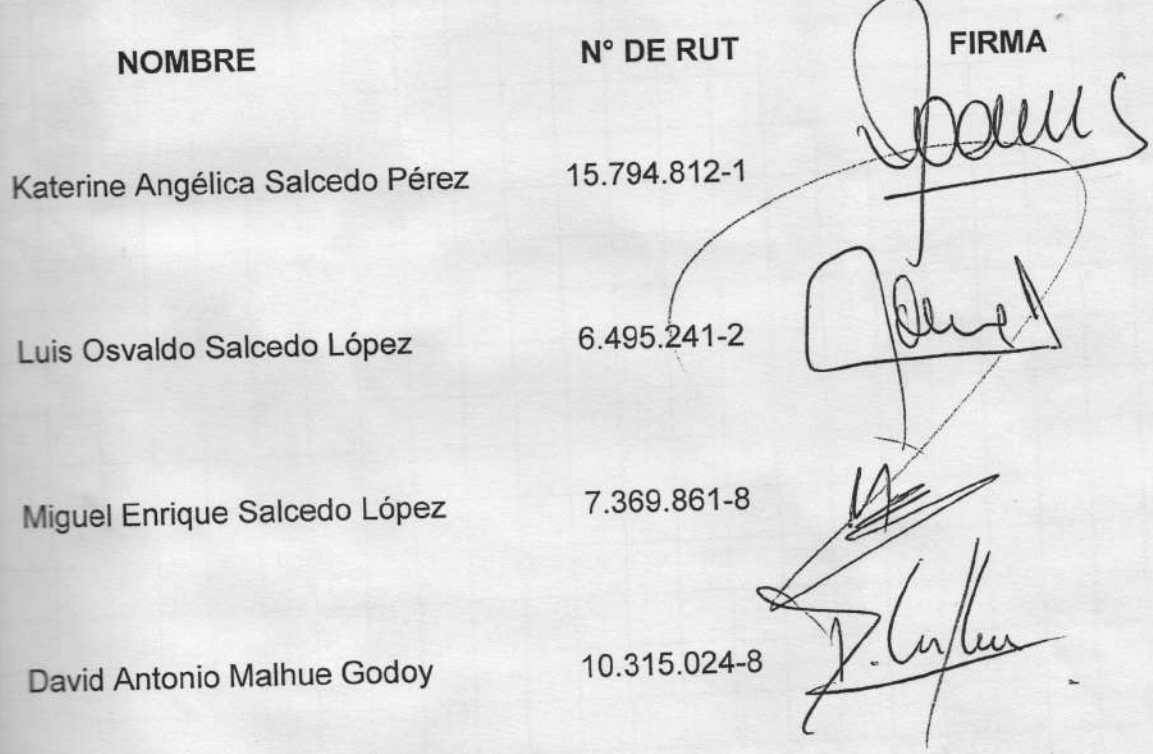 NOMBRE N° DE RUT FIRMA
Katerine Angélica Salcedo Pérez 15.794.812-1
Luis Osvaldo Salcedo López 6.495.241-2
Miguel Enrique Salcedo López 7.369.861-8
David Antonio Malhue Godoy 10.315.024-8